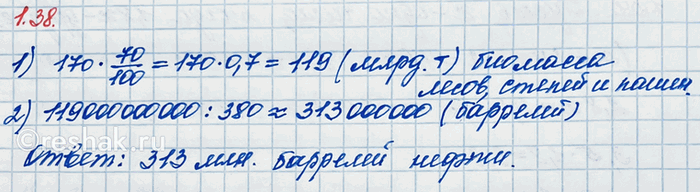 1.38.
1) 170 · 70/100 = 170 · 0,7 = 119 (млрд. т) биомасса
лесов, степей и пашен.
2) 119000000000 : 380 ≈ 313000000 (баррелей)
Ответ: 313 млн. баррелей нефти.
©reshak.ru